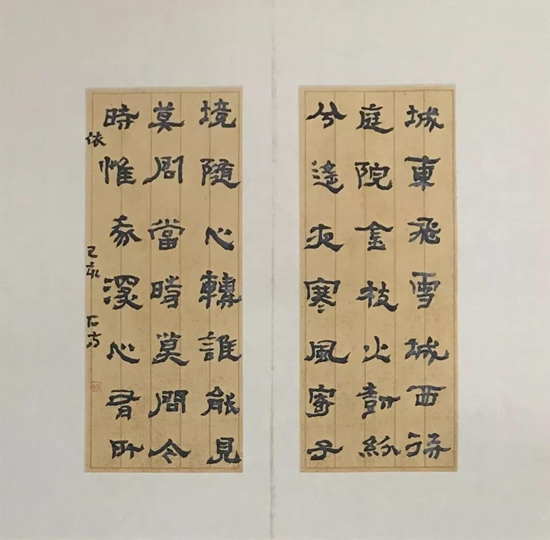 城東飛雪城西
庭院金枝火紛
兮遙夜寒風寄子
境隨心轉誰能見
莫問當時莫問今
時惟深心有所
依 己亥 石